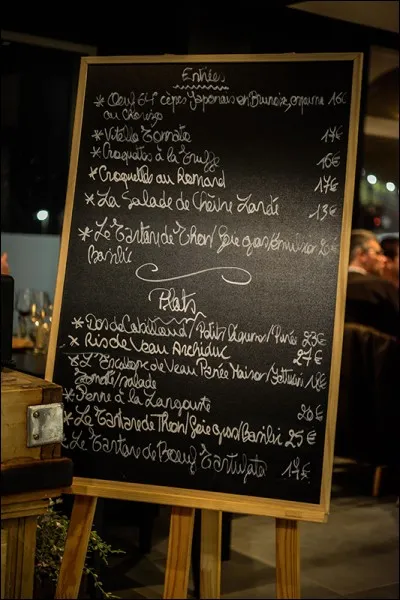 Entrées
* Oeuf 64° cèpes Japonais en Brunoise, 16€
au Chorizo
* Vitello Tomate 17€
* Croquettes à la Truffe 16€
* Croquettes au Romard 17€
* La Salade de Chèvre Lardé 13€
* Le Tartare de Thon/Foie gras/émulsion 20€
Basilic
Plats
* Dos de Cabillaud/Petits légumes/Purée 23€
* Ris de Veau Archiduc 27€
* L'Escalope de Veau Panée Maison/ 18€
Tomate/salade
* Penne à la Langouste 20€
* Le Tartare de Thon/Foie gras/Basilic 25€
* Le Tartare de Boeuf Tartufata 17€